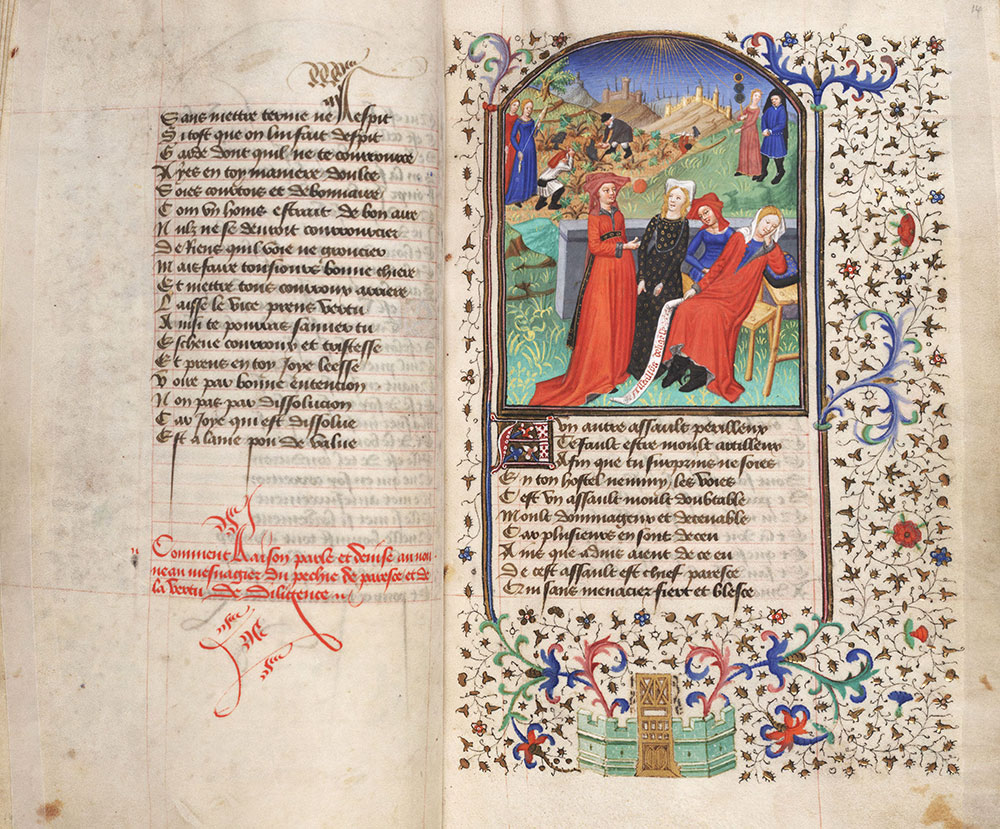 Sans mettre terme ne respit
Si tost que on lui fait despit
Garde dont quil ne te courrouce
Ayes en toy maniere doulce
Soies courtois et debonnaire
Com un homs estrait de bon aire
Nulz ne se deuroit courroucier
De Riens quil voie ne groucier
Mais faire tousiours bonne chiere
Et mettre tous courroux arriere
Laisse le vice prens vertu
Ainsi te pourras sauuer tu
Escheue courroux et tristesse
Et prens en toy Joye leesse
Voire par bonne entencion
Non pas par dissolucion
Car Joye qui est dissolue
Est a lame pou de value
Comment Raison parle et deuise au nou
ueau mesnagier du pechie de paresce et de
la vertu de diligence
14
A un autre assault perilleux
Te fault estre moult artilleux
Afin que tu surprins ne soies
En ton hostel nemmy les voies
Cest un assault moult doubtable
Moult dommageux et deceuable
Car plusieurs en sont deceu
Ains que aduis aient de ce eu
De cest assault est chief paresce
Qui sans menacier fiert et blesce